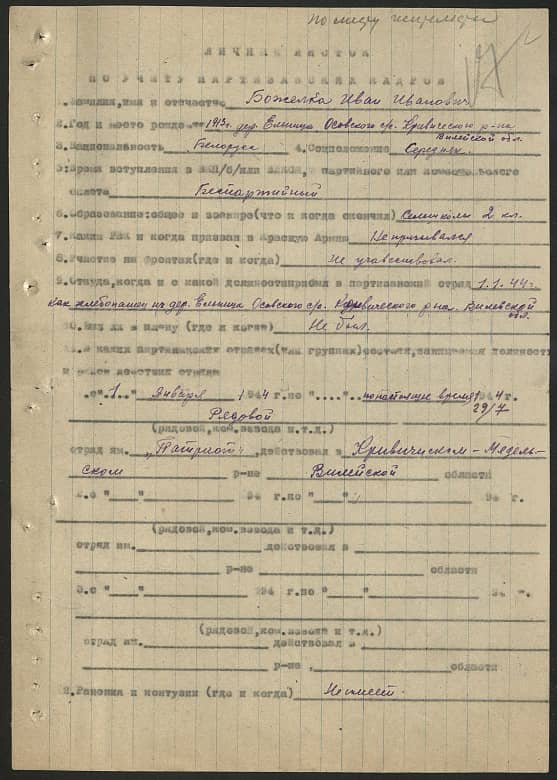 По месту
ЛИЧНЫЙ ЛИСТОК
ПО УЧЕТУ ПАРТИЗАНСКИХ КАДРОВ
1.Фамилия,имя и отчество Божелка Иван Иванович
2.Год и место рожде 1913г. дер. Ельница Осовского с/с. Кривического р-на
Вилейской обл.
3.Национальность Белорус 4.Соцположение Середняк.
5.Время вступления в ВКП/б/или ВЛКСМ, партийного или комсомольского
билета Беспартийный
6.Образование:общее и военное(что и когда окончил) Сел.школы 2 кл.
7.Каким РВК и когда призван в Красную Армию Не призывался
8.Участие на фронтах(где и когда) Не участвовал.
9.Откуда,когда и с какой должности прибыл в партизанский отряд 1.1.44г.
как хлебопашец из дер. Ельница Осовского с/с. Кривического р-на. Вилейской
обл.
10.Был ли в плену (где и когда) Не был.
11.В каких партизанских отрядах(или группах)состоял,занимаемая должность
и район действия отряда
1.с"1.." января 1944 г.по "...".. по настоящее время 1944г.
29/7
Рядовой
(рядовой,ком.взвода и т.д.)
отряд им. „Патриот" действовал в Кривичском - Мядель-
ском р-не Вилейской области
2.с "___"___ 194 г.по "___" 94 г.
(рядовой,ком.взвода и т.д.)
отряд им. действовал в
р-не области
3.с "___" 194 г.по "___" 94 г.
(рядовой,ком.взвода и т.д.)
отряд им. действовал в
р-не , области
12.Ранения и контузии (где и когда) Не имеет.